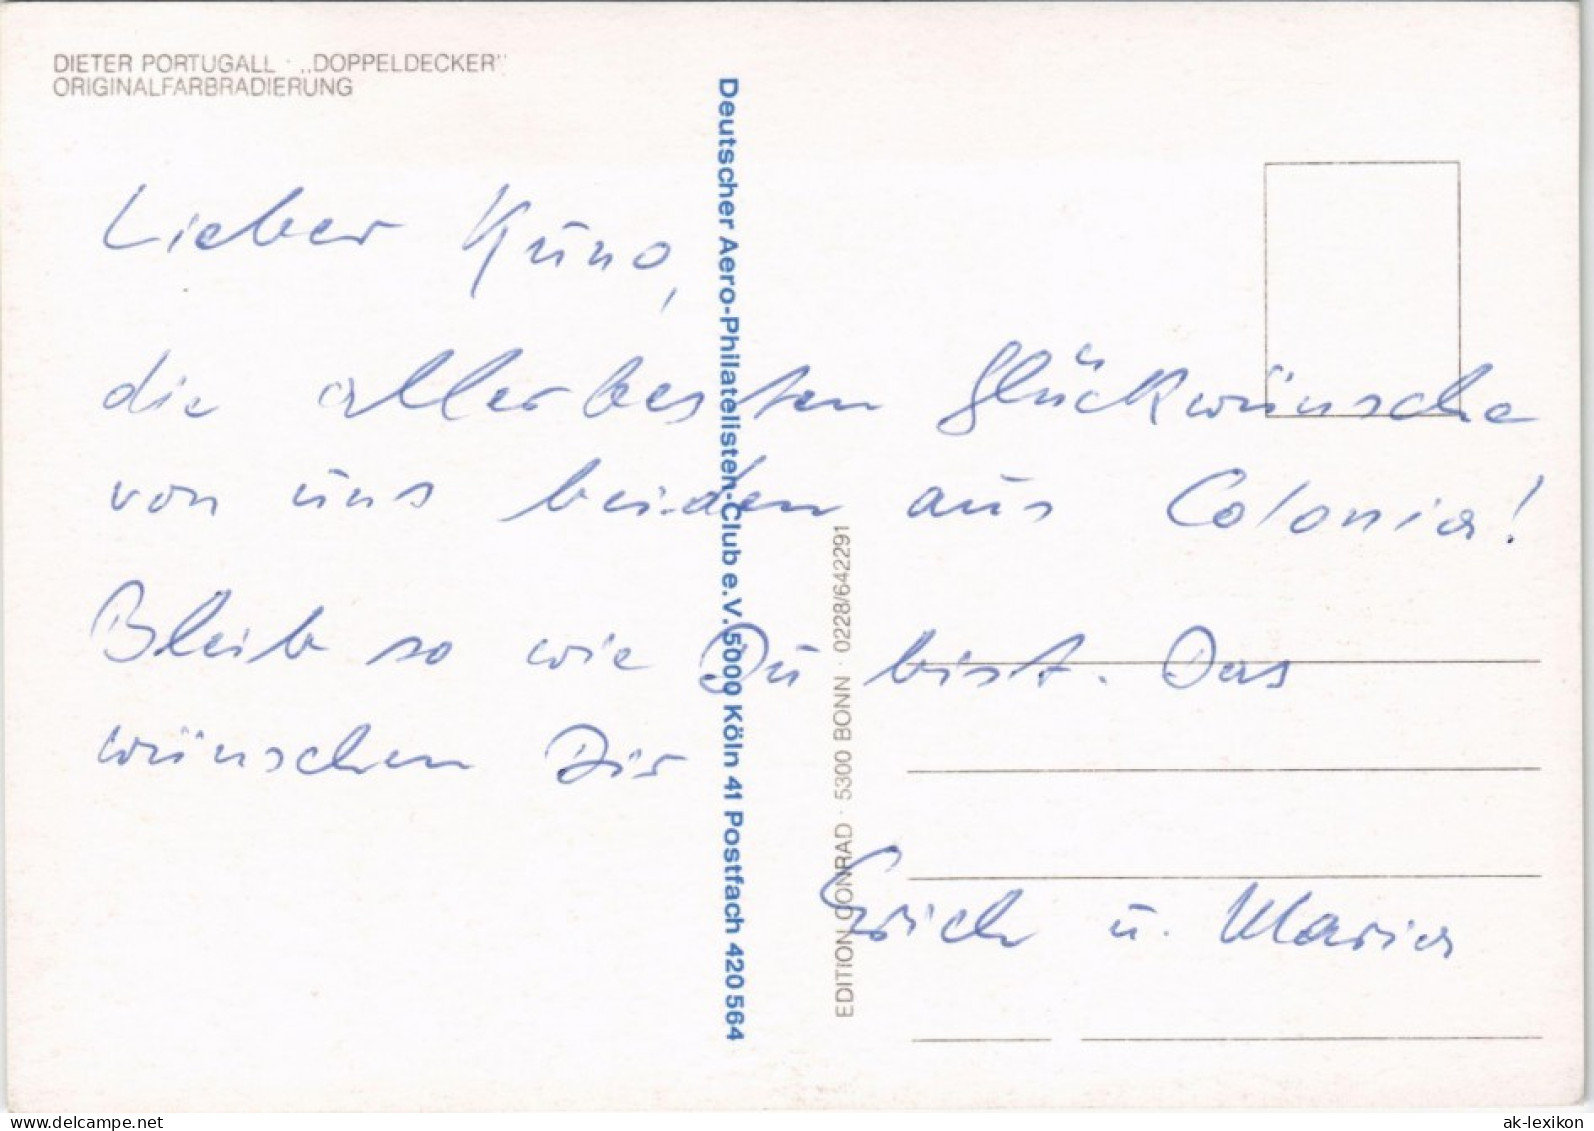 DIETER PORTUGALL · „DOPPELDECKER“
ORIGINALFARBRADIERUNG
Lieber Kuno,
die allerbesten Glückwünsche
von uns beiden aus Colonia!
Bleib so wie Du bist. Das
wünschen Dir
Erich u. Maria
Deutscher Aero-Philatelisten-Club e.V. 5000 Köln 41 Postfach 420564
EDITION CONRAD · 5300 BONN · 0228/642291
ak-lexikon